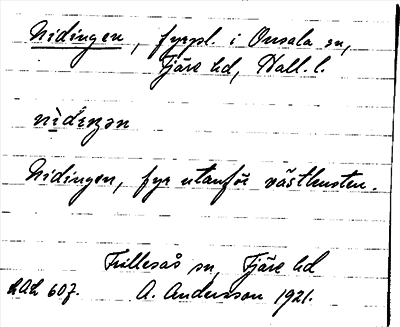 Nidingen, fyrpl. i Onsala sn,
Fjäre hd, Hall. l.
nìdɪŋən
Nidingen, fyr utanför västkusten.
Frillesås sn, Fjäre hd
LAL 607. A. Andersson 1921.